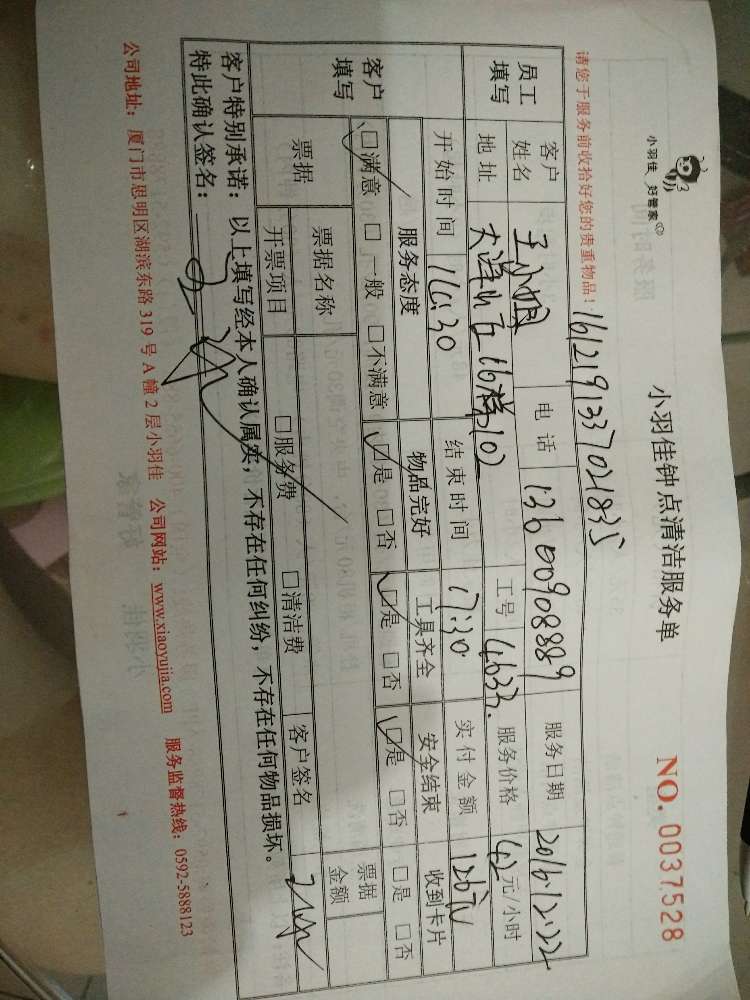 小羽佳 好管家
小羽佳钟点清洁服务单
NO. 0037528
请您于服务前收拾好您的贵重物品！
1612191337021835
员工填写 客户姓名 王小姐 电话 13600908889 服务日期 2016.12.22
地址 16楼102 工号 4633. 服务价格 42元/小时
开始时间 14:30 结束时间 17:30 实付金额 126元
客户填写 服务态度 物品完好 工具齐全 安全结束 收到卡片
☑满意 □一般 □不满意 ☑是 □否 ☑是 □否 ☑是 □否 □是 □否
票据 票据名称 票据金额
开票项目 □服务费 □清洁费 客户签名
客户特别承诺：以上填写经本人确认属实，不存在任何纠纷，不存在任何物品损坏。
特此确认签名：
公司地址：厦门市思明区湖滨东路319号A幢2层小羽佳 公司网站：www.xiaoyujia.com 服务监督热线：0592-5888123